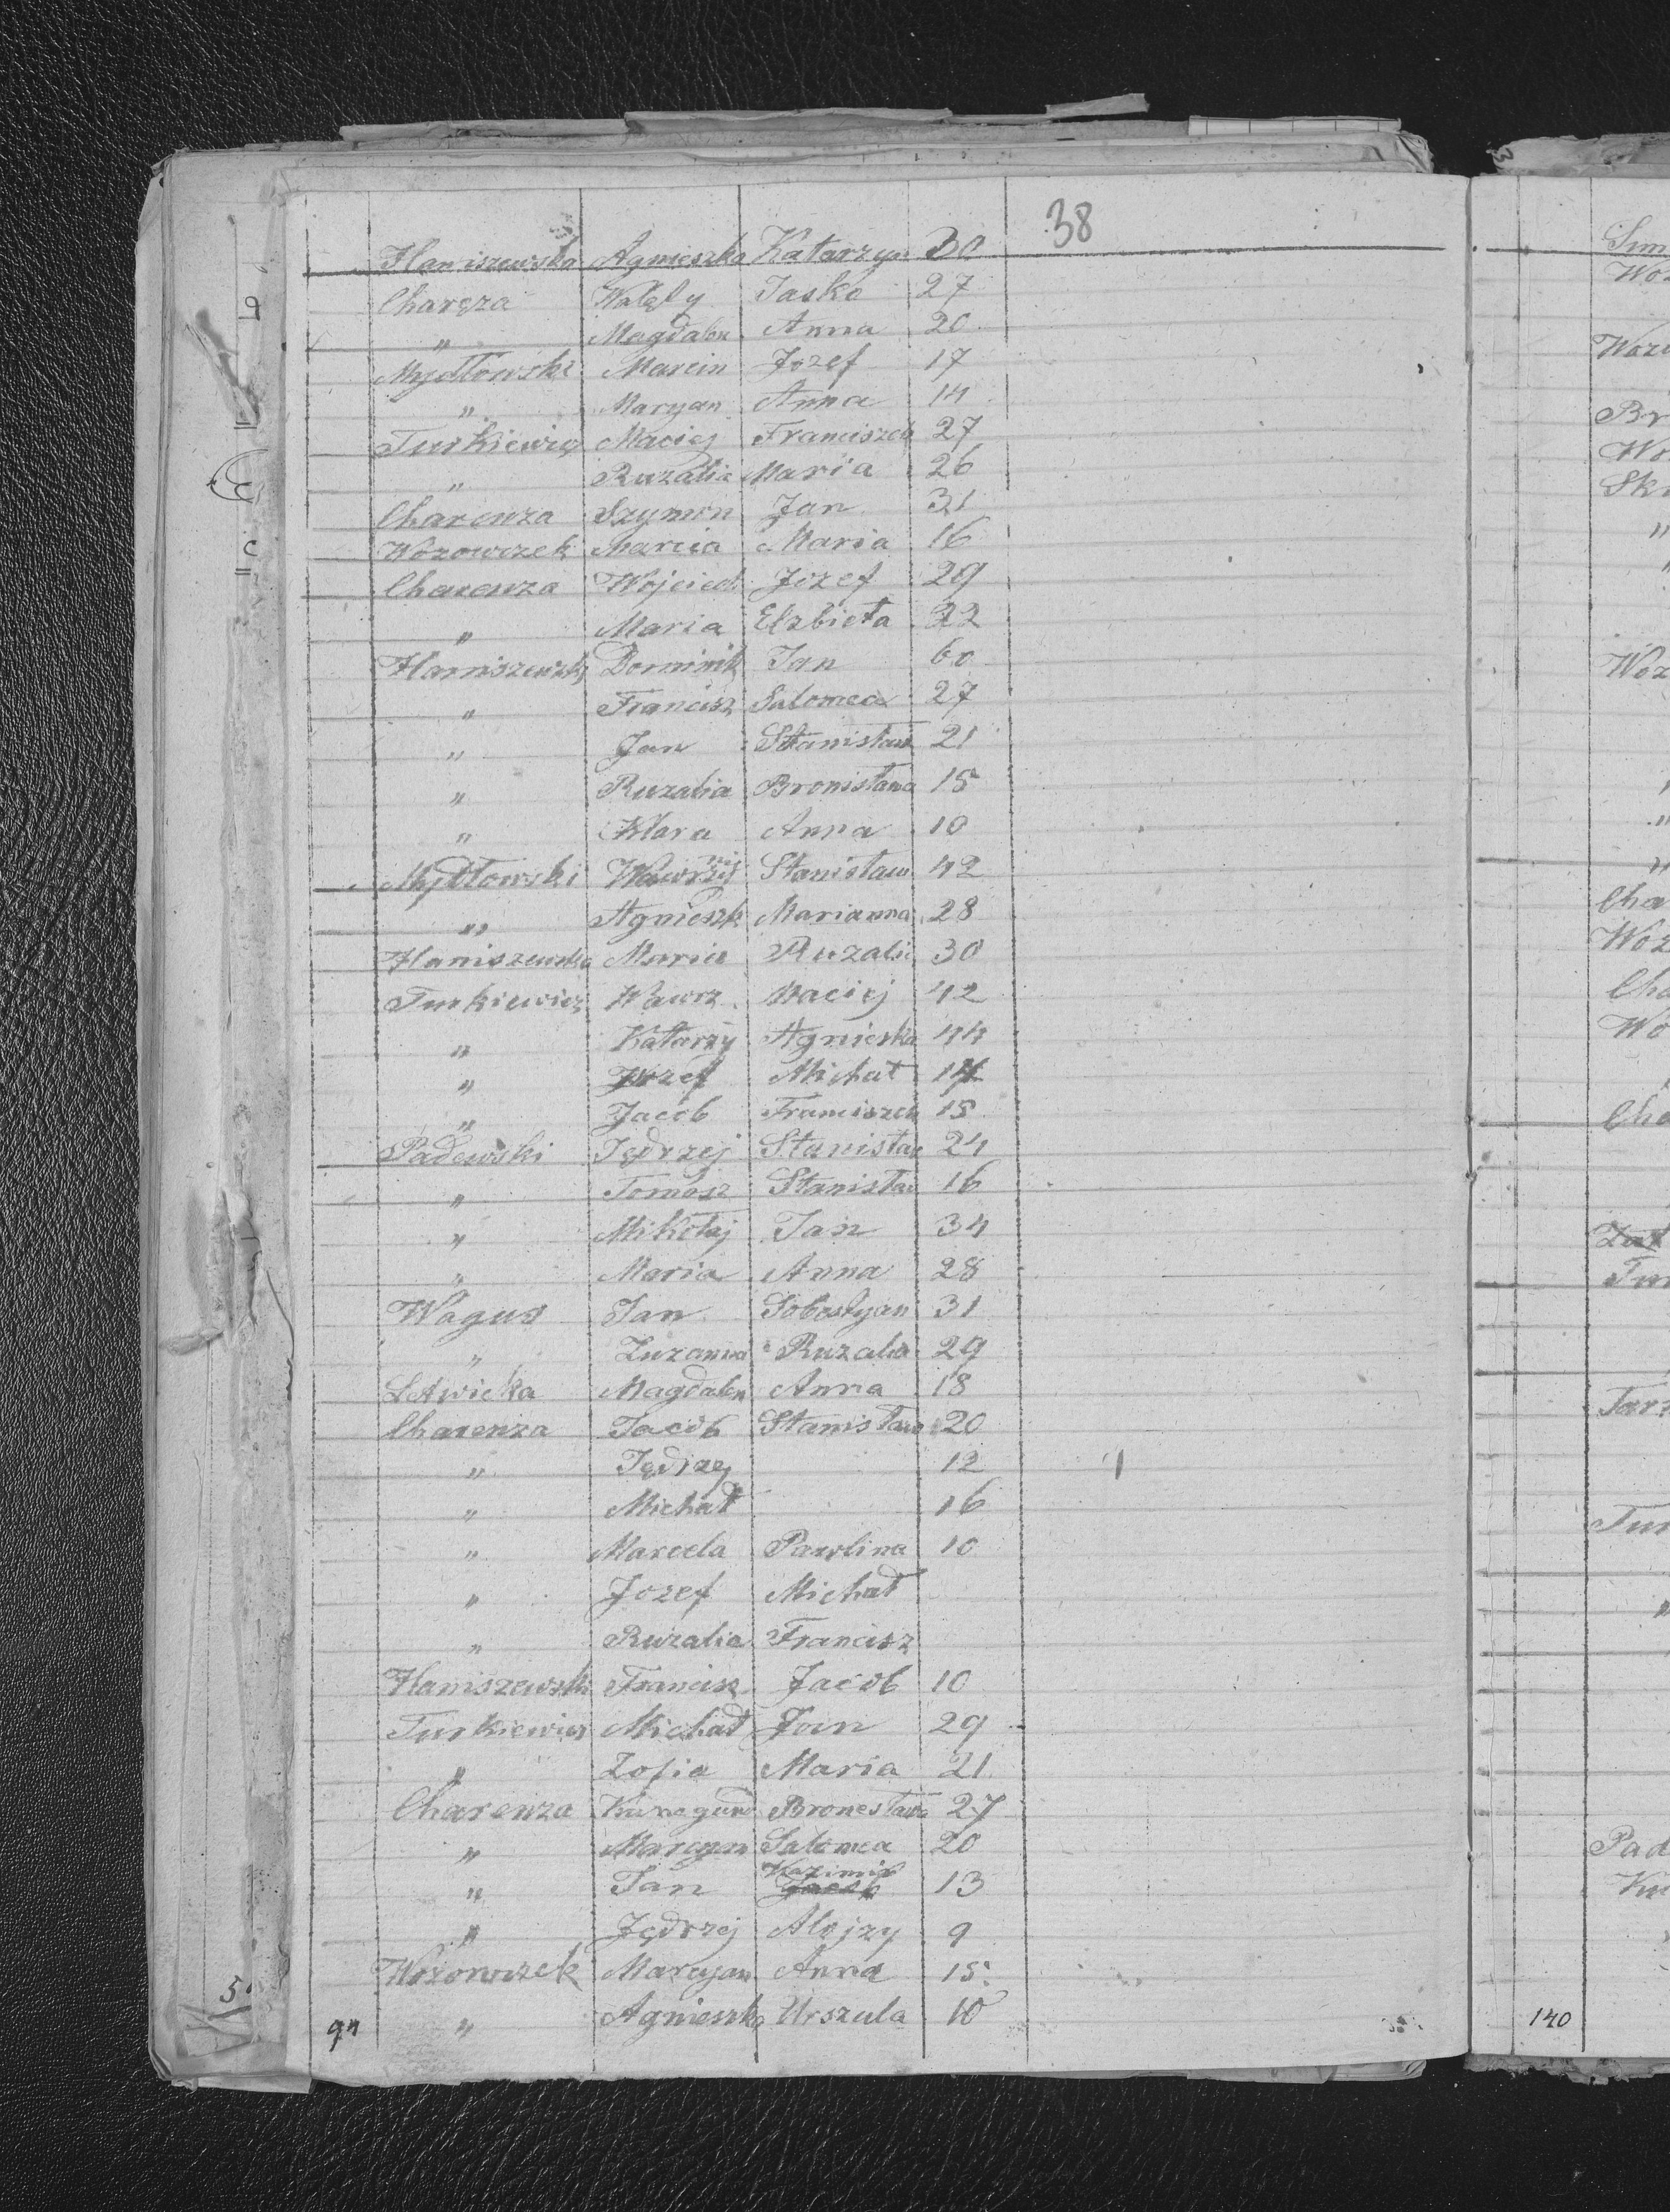 38
Haniszewska Agnieszka Katarzyn 30
Charęza Walęty Jasko 27
" Magdalen Anna 20
Mydłowski Marcin Jozef 17
" Maryan Anna 14
Turkiewicz Maciej Franciszek 27
" Ruzalia Maria 26
Charenza Szymon Jan 31
Wozowczek Marcia Maria 16
Charenza Wojciech Jozef 29
" Maria Elzbieta 22
Haniszewski Dominik Jan 60
" Francisz Salomea 27
" Jan Stanisław 21
" Ruzalia Bronisława 15
" Klara Anna 10
Mydłowski Wawrzy Stanisław 42
" Agnieszk Marianna 28
Haniszewska Maria Ruzalia 30
Turkiewicz Wawrz Maciej 42
" Katarzy Agnieska 44
" Jozef Michał 17
" Jacob Franciszek 15
Padewski Jędrzej Stanisław 24
" Tomasz Stanisław 16
" Mikołaj Jan 34
" Maria Anna 28
Wagus Jan Sobostyan 31
" Zuzanna Ruzalia 29
Letwicka Magdalen Anna 18
Charenza Jacob Stanisław 20
" Jędrzej 12
" Michał 16
" Marcela Pawlina 10
" Jozef Michał
" Ruzalia Francisz
Haniszewski Francisz Jacob 10
Turkiewicz Michał Jan 29
" Zofia Maria 21
Charenza Kunegund Bronesława 27
" Maryan Salomea 20
" Jan Kazimir Jacob 13
" Jędrzej Alojzy 9
Wozowczek Maryan Anna 15
" Agnieszka Urszula 10
94
5
140
Woz
Br
Wo
Sk
Woz
Cha
Woz
Cha
Wo
Cha
Zat
Tur
Tarz
Tur
Pad
Ku